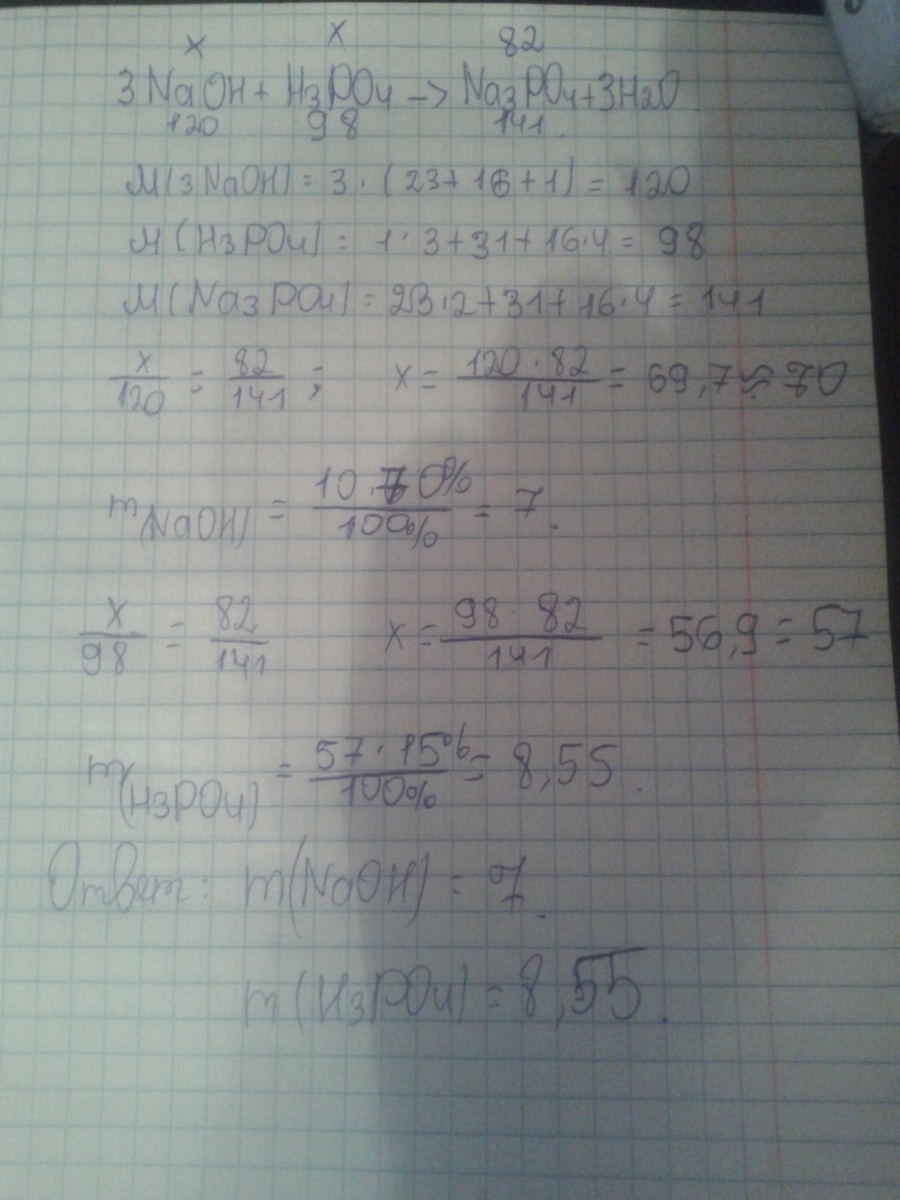 x x 82
3 NaOH + H3PO4 -> Na3PO4 + 3H2O
120 98 141
M(3NaOH) = 3 · (23 + 16 + 1) = 120
M(H3PO4) = 1 · 3 + 31 + 16 · 4 = 98
M(Na3PO4) = 23 · 2 + 31 + 16 · 4 = 141
x/120 = 82/141 ; x = 120 · 82/141 = 69,7 ≈ 70
m(NaOH) = 10 · 70%/100% = 7.
x/98 = 82/141 x = 98 · 82/141 = 56,9 = 57
m(H3PO4) = 57 · 15%/100% = 8,55.
Ответ: m(NaOH) = 7.
m(H3PO4) = 8,55.